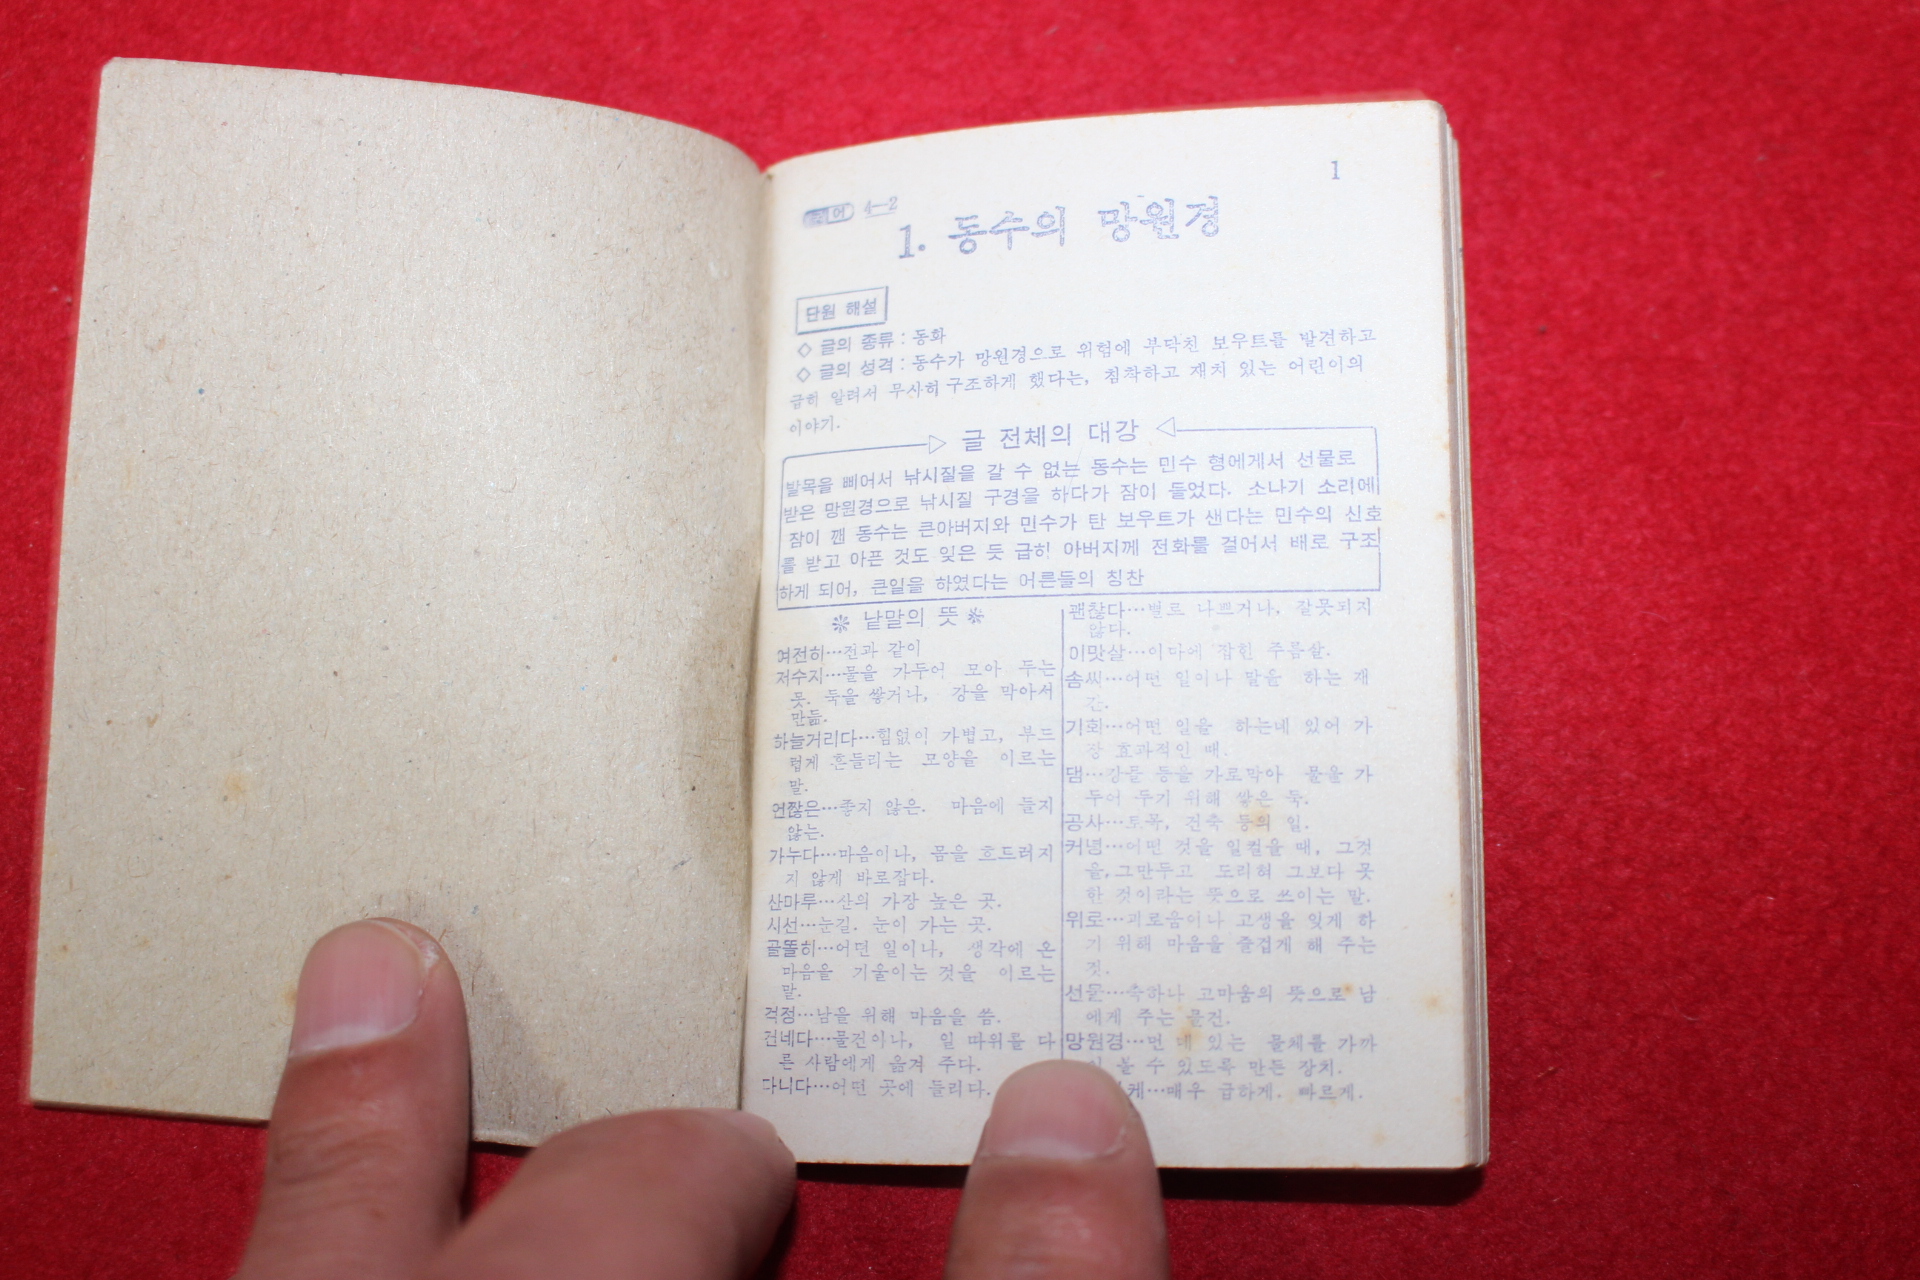 1
국어 4—2
1. 동수의 망원경
단원 해설
◇ 글의 종류 : 동화
◇ 글의 성격 : 동수가 망원경으로 위험에 부닥친 보우트를 발견하고
급히 알려서 무사히 구조하게 했다는, 침착하고 재치 있는 어린이의
이야기.
글 전체의 대강
발목을 삐어서 낚시질을 갈 수 없는 동수는 민수 형에게서 선물로
받은 망원경으로 낚시질 구경을 하다가 잠이 들었다. 소나기 소리에
잠이 깬 동수는 큰아버지와 민수가 탄 보우트가 샌다는 민수의 신호
를 받고 아픈 것도 잊은 듯 급히 아버지께 전화를 걸어서 배로 구조
하게 되어, 큰일을 하였다는 어른들의 칭찬
※ 낱말의 뜻 ※
여전히…전과 같이
저수지…물을 가두어 모아 두는
못. 둑을 쌓거나, 강을 막아서
만듦.
하늘거리다…힘없이 가볍고, 부드
럽게 흔들리는 모양을 이르는
말.
언짢은…좋지 않은. 마음에 들지
않는.
가누다…마음이나, 몸을 흐드러지
지 않게 바로잡다.
산마루…산의 가장 높은 곳.
시선…눈길. 눈이 가는 곳.
골똘히…어떤 일이나, 생각에 온
마음을 기울이는 것을 이르는
말.
걱정…남을 위해 마음을 씀.
건네다…물건이나, 일 따위를 다
른 사람에게 옮겨 주다.
다니다…어떤 곳에 들리다.
괜찮다…별로 나쁘거나, 잘못되지
않다.
이맛살…이마에 잡힌 주름살.
솜씨…어떤 일이나 말을 하는 재
간.
기회…어떤 일을 하는데 있어 가
장 효과적인 때.
댐…강물 등을 가로막아 물을 가
두어 두기 위해 쌓은 둑.
공사…토목, 건축 등의 일.
커녕…어떤 것을 일컬을 때, 그것
을,그만두고 도리혀 그보다 못
한 것이라는 뜻으로 쓰이는 말.
위로…괴로움이나 고생을 잊게 하
기 위해 마음을 즐겁게 해 주는
것.
선물…축하나 고마움의 뜻으로 남
에게 주는 물건.
망원경…먼 데 있는 물체를 가까
이 볼 수 있도록 만든 장치.
케…매우 급하게. 빠르게.